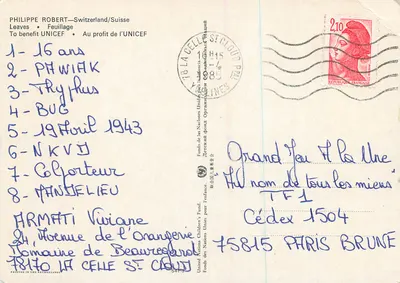 PHILIPPE ROBERT—Switzerland/Suisse
Leaves • Feuillage
To benefit UNICEF • Au profit de l'UNICEF
78 LA CELLE ST CLOUD
2,10
1- 16 ans
2- PAWIAK
3- Thyphus
4- BUG
5- 19 Avril 1943
6- NKVD
7- Colporteur
8- MANDELIEU
ARMATI Viviane
24, Avenue de l'orangerie
Domaine de Beauregard
78170 LA CELLE ST CLOUD
Grand Jeu A la Une
Au nom de tous les miens
TF1
Cédex 1504
75815 PARIS BRUNE